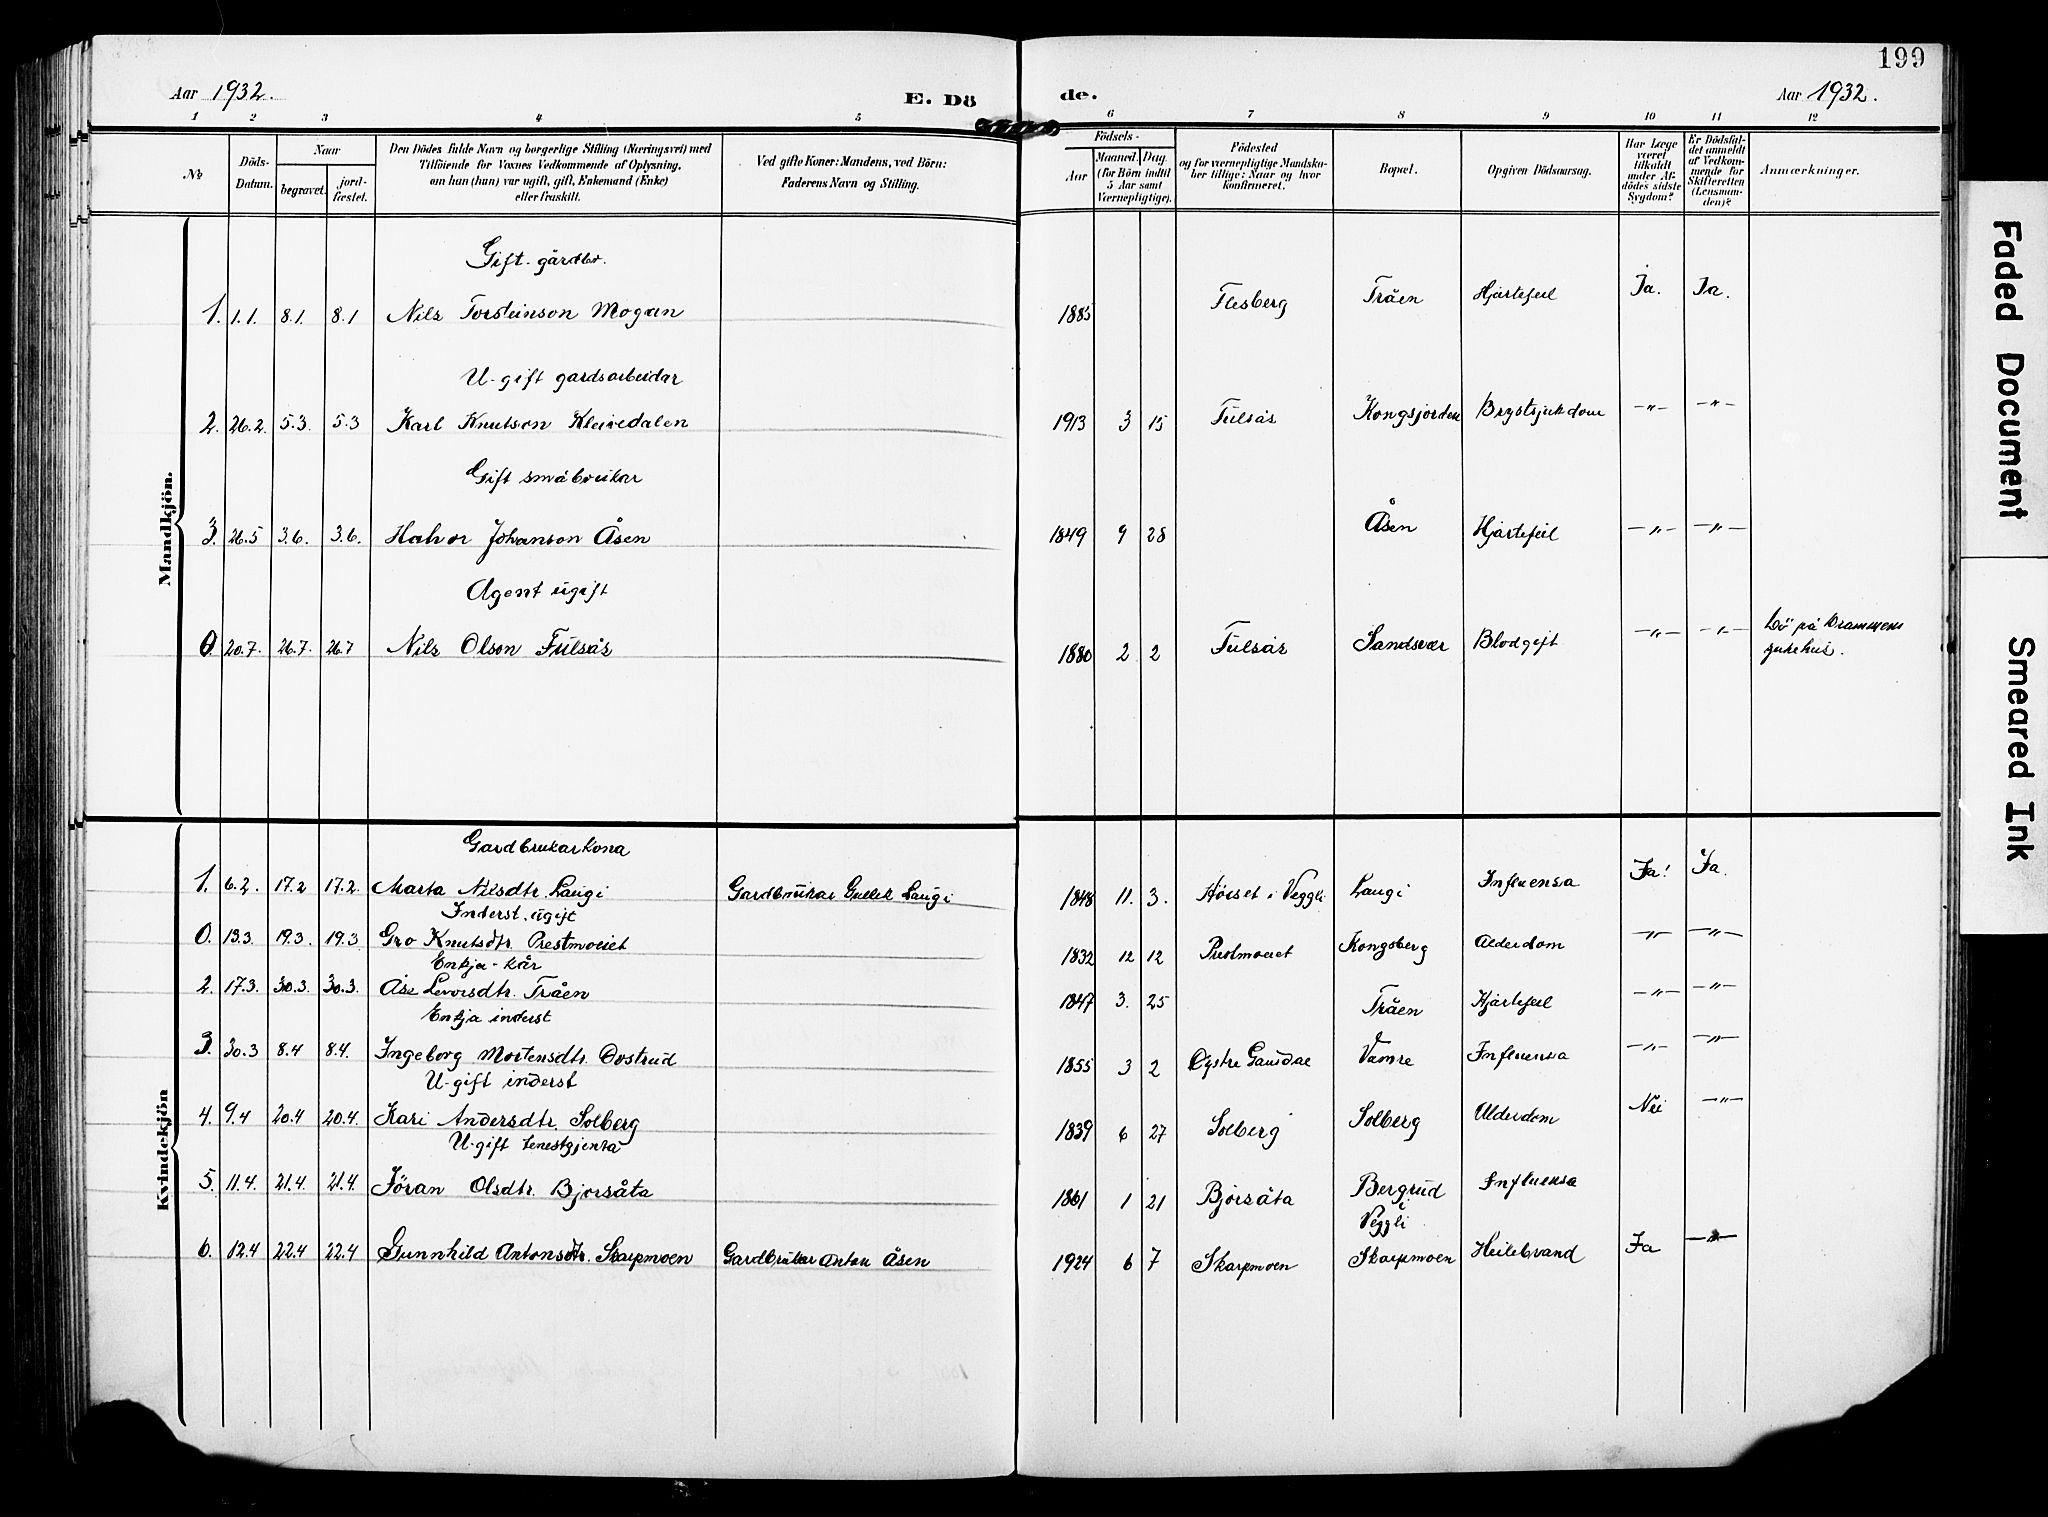 199
Aar 1932. E. Dö de. Aar 1932.
1 2 3 4 5 6 7 8 9 10 11 12
No
Döds-Datum.
Naar
begravet. jord-fæstet.
Den Dödes fulde Navn og borgerlige Stilling (Næringsvei) med
Tilföiende for Voxnes Vedkommende af Oplysning,
om han (hun) var ugift, gift, Enkemand (Enke)
eller fraskilt.
Ved gifte Koner: Mandens, ved Börn:
Faderens Navn og Stilling.
Födsels-
Aar Maaned. Dag.
(for Börn indtil
5 Aar samt
Værnepligtige).
Födested
og for værnepligtige Mandska-
ber tillige: Naar og hvor
konfirmeret.
Bopæl.
Opgiven Dödsaarsag.
Har Læge
været
tilkaldt
under Af-
dödes sidste
Sygdom?
Er Dödsfal-
det anmeldt
af Vedkom-
mende for
Skifteretten
(Lensman-
den)?
Anmærkninger.
Mandkjön.
Gift gårdbr.
1. 1.1. 8.1. 8.1 Nils Torsteinson Mogan 1885 Flesberg Tråen Hjartefeil Ja. Ja.
U-gift gardsarbeidar
2. 26.2. 5.3. 5.3 Karl Knutson Kleivedalen 1913 3 15 Fulsås Kongsjorden Brystsjukdom -"- -"-
Gift småbrukar
3. 26.5 3.6. 3.6. Halvor Johanson Åsen 1849 9 28 Åsen Hjartefeil -"- -"-
Agent ugift
0. 20.7. 26.7. 26.7 Nils Olson Fulsås 1880 2 2 Fulsås Sandsvær Blodgift -"- -"- Dö på Drammens
sjukehus.
Kvindekjön
Gardbrukarkona
1. 6.2. 17.2 17.2. Marta Nilsdtr. Laugi Gardbrukar Gullik Laugi 1848 11. 3. Hörset i Veggli Laugi Influensa Ja! Ja.
Inderst. ugift
0. 13.3. 19.3. 19.3 Gro Knutsdtr. Prestmoeiet 1832 12 12 Prestmoeiet Kongsberg Alderdom -"- -"-
Enkja - kår
2. 17.3. 30.3. 30.3. Åse Levorsdtr. Tråen 1847 3. 25 Tråen Hjartefeil -"- -"-
Enkja inderst
3. 30.3 8.4 8.4. Ingeborg Mortensdtr. Dostrud 1855 3 2 Øystre Gausdal Vamre Influensa -"- -"-
U-gift inderst
4. 9.4 20.4 20.4. Kari Andersdtr Solberg 1839 6 27 Solberg Solberg Alderdom Nei -"-
U-gift tenestgjenta
5. 11.4. 21.4. 21.4 Jöran Olsdtr. Bjorsåta 1861 1 21 Bjorsåta Bergrud i Veggli Influensa
6. 12.4 22.4 22.4 Gunnhild Antonsdtr. Skarpmoen Gardbrukar Anton Åsen 1924 6 7 Skarpmoen Skarpmoen Heilebrand Ja -"-
Faded Document
Smeared Ink